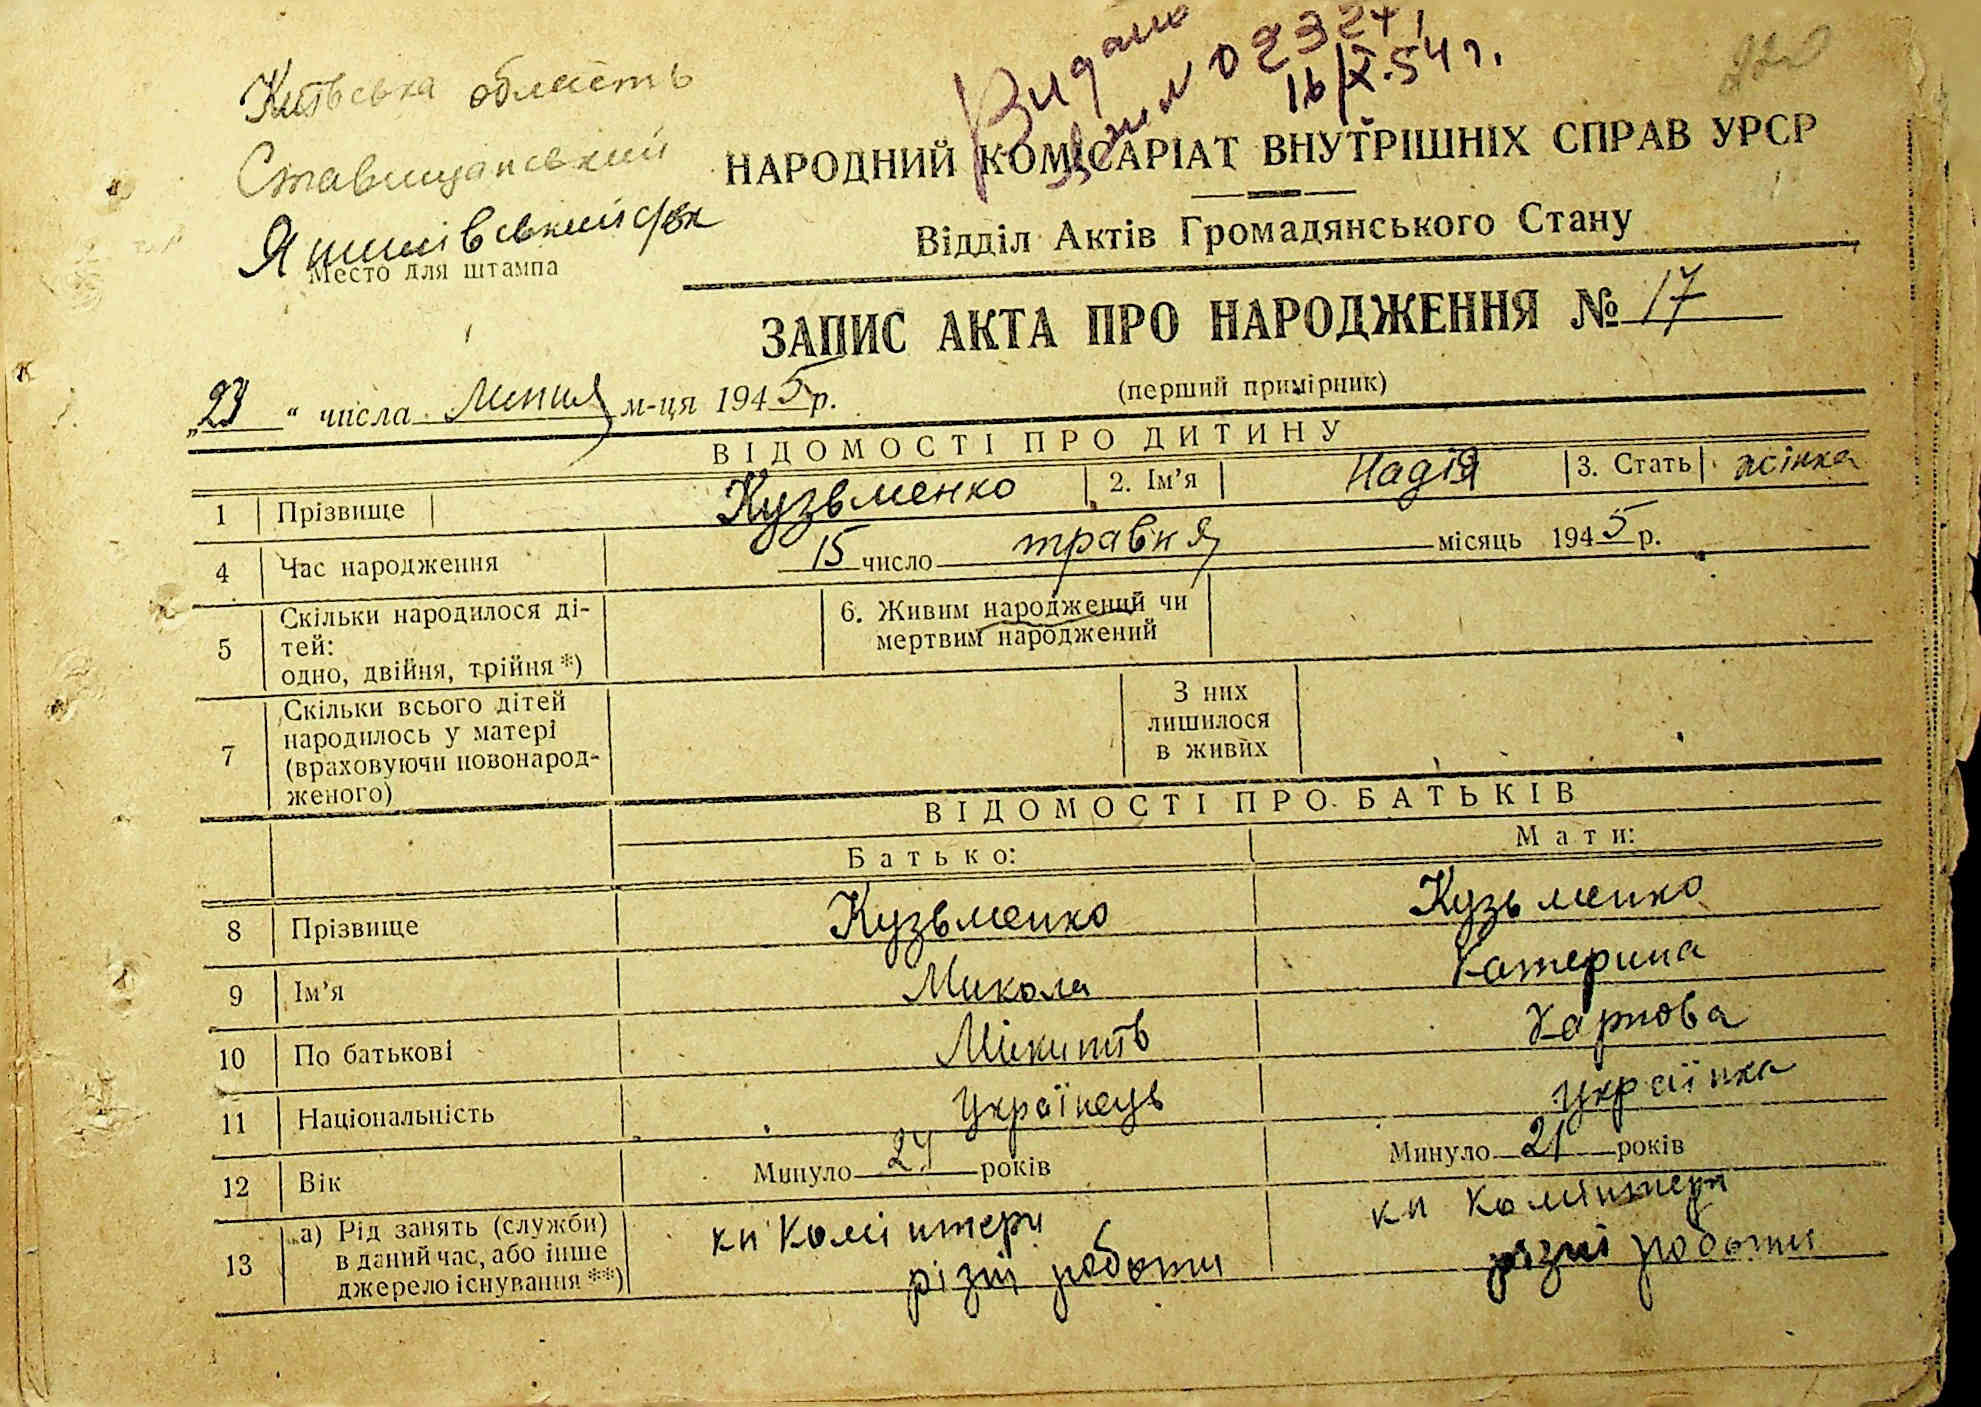 Видано
02324
16/X.54 р.
220
Київська область
Ставищанський
Яшнівський с/вк
Место для штампа
НАРОДНИЙ КОМІСАРІАТ ВНУТРІШНІХ СПРАВ УРСР
Відділ Актів Громадянського Стану
ЗАПИС АКТА ПРО НАРОДЖЕННЯ № 17
(перший примірник)
„23 “ числа Липня м-ця 1945 р.
ВІДОМОСТІ ПРО ДИТИНУ
1 Прізвище Кузьменко 2. Ім’я Надія 3. Стать жінка
4 Час народження 15 число травня місяць 1945 р.
5 Скільки народилося ді-
тей:
одно, двійня, трійня *)
6. Живим народжений чи
мертвим народжений
7 Скільки всього дітей
народилось у матері
(враховуючи новонарод-
женого)
З них
лишилося
в живих
ВІДОМОСТІ ПРО БАТЬКІВ
Батько: Мати:
8 Прізвище Кузьменко Кузьменко
9 Ім’я Микола Катерина
10 По батькові Микитів Карпова
11 Національність Українець Українка
12 Вік Минуло 24 років Минуло 21 років
13 а) Рід занять (служби)
в даний час, або інше
джерело існування **)
кп Комінтерн
різні роботи
кп Комінтерн
різні роботи